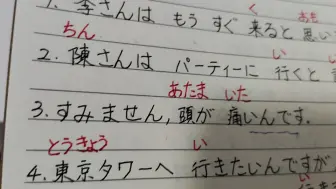 1. 李さんは もう すぐ 来ると 思い
く おも
ちん い
2. 陳さんは パーティーに 行くと
あたま いた
3. すみません, 頭が 痛いんです.
とうきょう い
4. 東京タワーへ 行きたいんですが